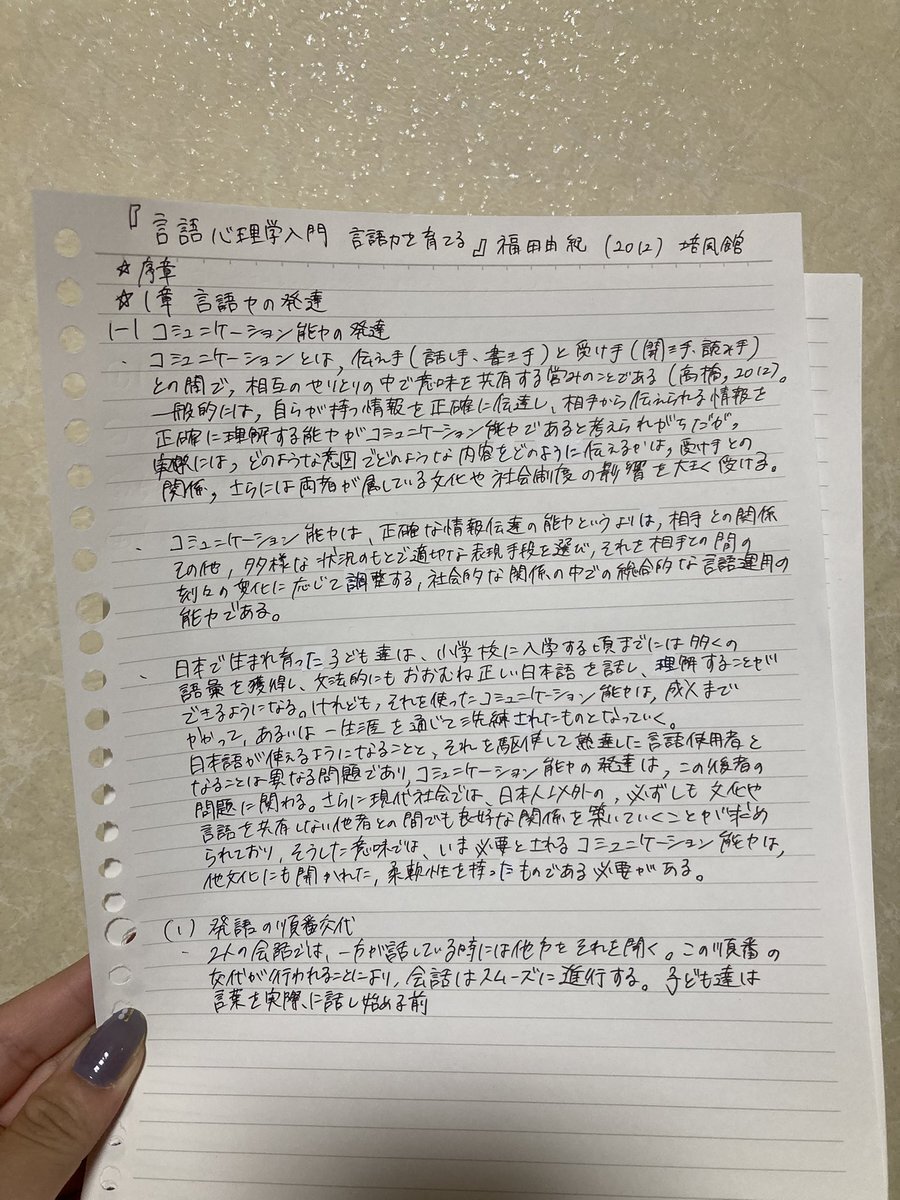 『言語心理学入門 言語力を育てる』福田由紀(2012) 培風館
☆序章
☆1章 言語力の発達
1-1 コミュニケーション能力の発達
・コミュニケーションとは、伝え手(話し手、書き手)と受け手(聞き手、読み手)
との間で、相互のやりとりの中で意味を共有する営みのことである(高橋,2012)。
一般的には、自らが持つ情報を正確に伝達し、相手から伝えられる情報を
正確に理解する能力がコミュニケーション能力であると考えられがちだが。
実際には、どのような意図でどのような内容をどのように伝えるかは、受け手との
関係、さらには両者が属している文化や社会制度の影響を大きく受ける。
・コミュニケーション能力は、正確な情報伝達の能力というよりは、相手との関係
その他、多様な状況のもとで適切な表現手段を選び、それを相手との間の
刻々の変化に応じて調整する、社会的な関係の中での統合的な言語運用の
能力である。
・日本で生まれ育った子ども達は、小学校に入学する頃までには多くの
語彙を獲得し、文法的にもおおむね正しい日本語を話し、理解することが
できるようになる。けれども、それを使ったコミュニケーション能力は、成人まで
かかって、あるいは一生涯を通じて洗練されたものとなっていく。
日本語が使えるようになることと、それを駆使して熟達した言語使用者と
なることは異なる問題であり、コミュニケーション能力の発達は、この後者の
問題に関わる。さらに現代社会では、日本人以外の、必ずしも文化や
言語を共有しない他者との間でも良好な関係を築いていくことが求め
られており、そうした意味では、いま必要とされるコミュニケーション能力は、
他文化にも開かれた、柔軟性を持ったものである必要がある。
(1) 発語の順番交代
・2人の会話では、一方が話している時には他方をそれを聞く。この順番の
交代が行われることにより、会話はスムーズに進行する。子ども達は
言葉を実際に話し始める前